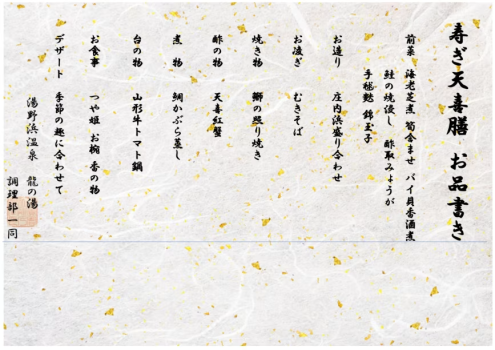 寿ぎ天喜膳 お品書き
前菜 海老芝煮 筍合ませ バイ貝香酒煮
鮭の焼浸し 酢取みょうが
手毬麩 錦玉子
お造り 庄内浜盛り合わせ
お凌ぎ むきそば
焼き物 鰤の照り焼き
酢の物 天喜紅蟹
煮物 鯛かぶら蒸し
台の物 山形牛トマト鍋
お食事 つや姫 お椀 香の物
デザート 季節の趣に合わせて
湯野浜温泉 龍の湯
調理部一同